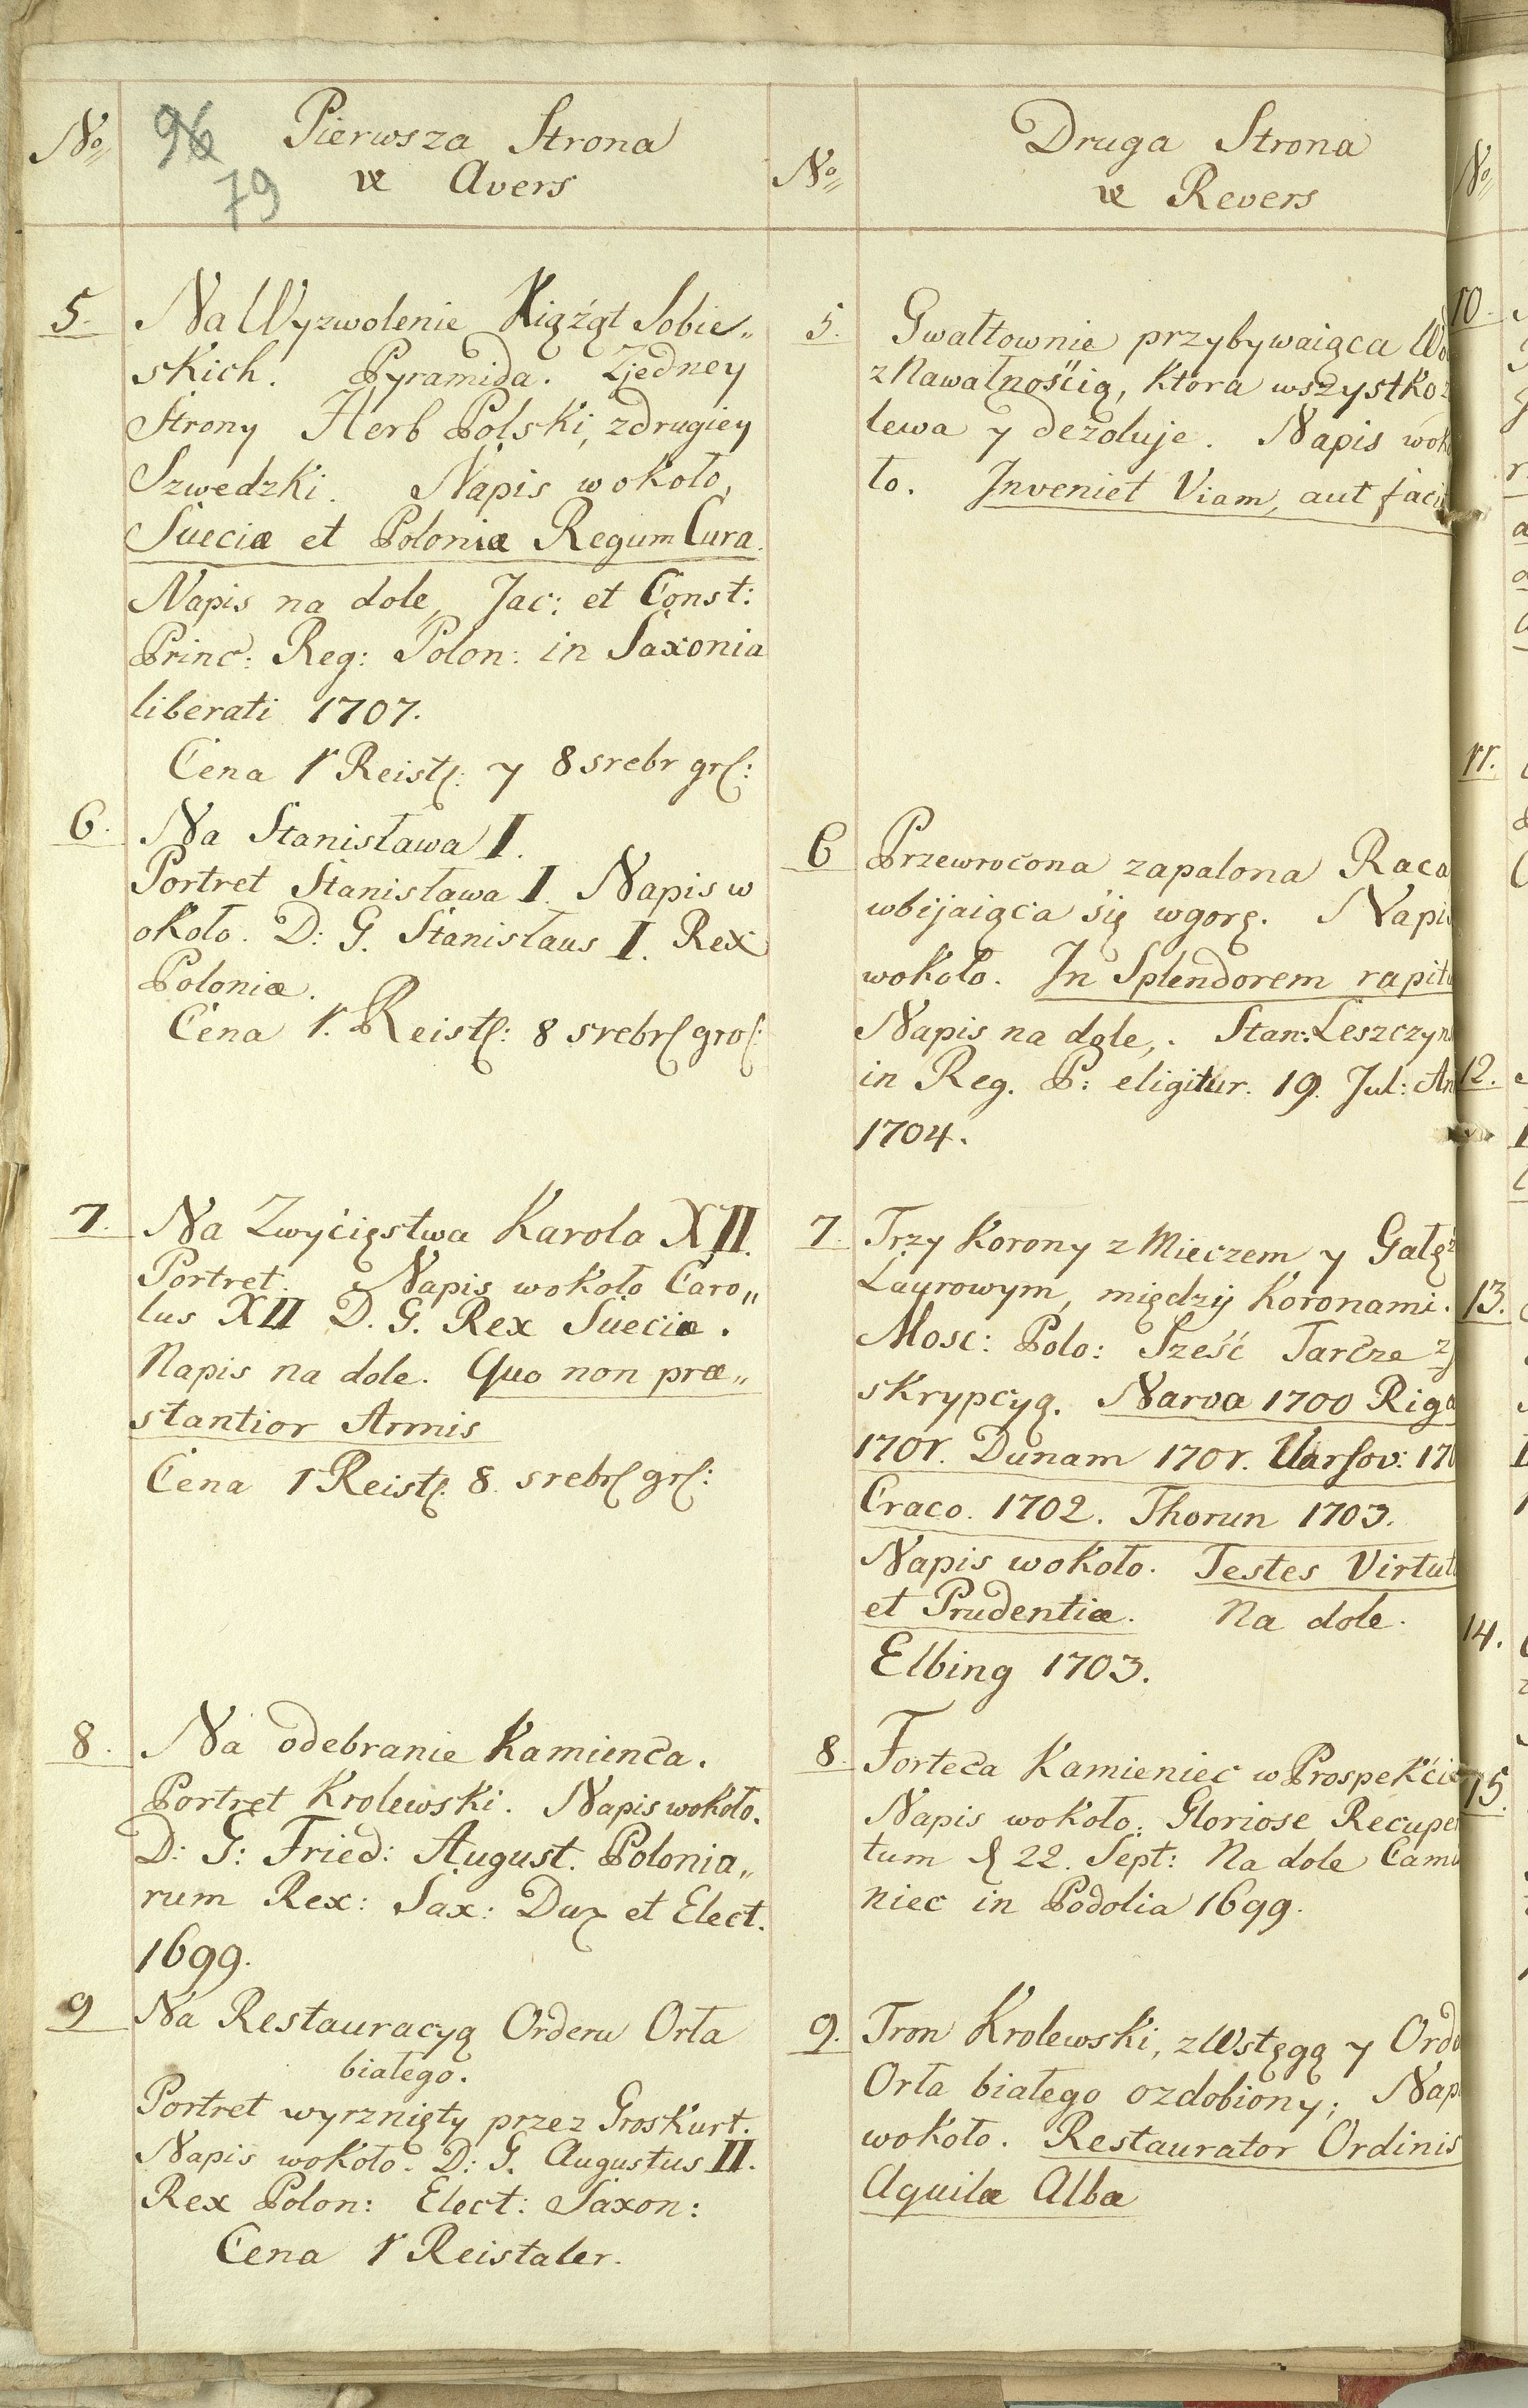 No
96
79
Pierwsza Strona
æ Avers
No
Druga Strona
æ Revers
5.
Na Wyzwolenie Xiążąt Sobie„
skich. Pyramida. Zjedney
Strony Herb Polski, zdrugiey
Szwedzki. Napis wokoło,
Sueciæ et Poloniæ Regum Cura.
Napis na dole, Jac: et Const:
Princ: Reg: Polon: in Saxonia
liberati 1707.
Cena 1 Reistl: y 8 srebr grl:
5.
Gwałtownie przybywaiąca
z Nawałnością, ktora wszystko
lewa y dezoluje. Napis wok
ło. Inveniet Viam, aut faci
6.
Na Stanisława I.
Portret Stanisława I. Napis w
około. D: G. Stanislaus I. Rex
Poloniæ.
Cena 1. Reistl: 8 srebrl grol:
6
Przewrocona zapalona Raca
wbijaiąca się wgorę. Napis
wokoło. In Splendorem rapit
Napis na dole,. Stan: Leszczyn
in Reg. P: eligitur. 19. Jul: An
1704.
7.
Na Zwycięstwa Karola XII.
Portret. Napis wokoło Caro„
lus XII D. G. Rex Sueciæ.
Napis na dole. Quo non præ„
stantior Armis
Cena 1 Reistl: 8. srebrl grl:
7.
Trzy Korony z Mieczem y Gałę
Laurowym, między Koronami.
Mosc: Polo: Sześć Tarcze z
skrypcyą. Narva 1700 Riga
1701. Dunam 1701. Varsov: 17
Craco. 1702. Thorun 1703.
Napis wokoło. Testes Virtut
et Prudentiæ. Na dole.
Elbing 1703.
8.
Na odebranie Kamienca.
Portret Krolewski. Napis wokoło.
D: G: Fried: August. Polonia„
rum Rex: Sax: Dux et Elect.
1699.
8.
Forteca Kamieniec w Prospekcie
Napis wokoło: Gloriose Recuper
tum 22. Sept: Na dole Cami
niec in Podolia 1699.
9
Na Restauracyą Orderu Orła
białego.
Portret wyrznięty przez Groskurt.
Napis wokoło. D: G. Augustus II.
Rex Polon: Elect: Saxon:
Cena 1 Reistaler.
9.
Tron Krolewski, z Wstęgą y Ord
Orła białego ozdobiony; Nap
wokoło. Restaurator Ordinis
Aquilæ Albæ
No
10.
11.
12.
13.
14.
15.